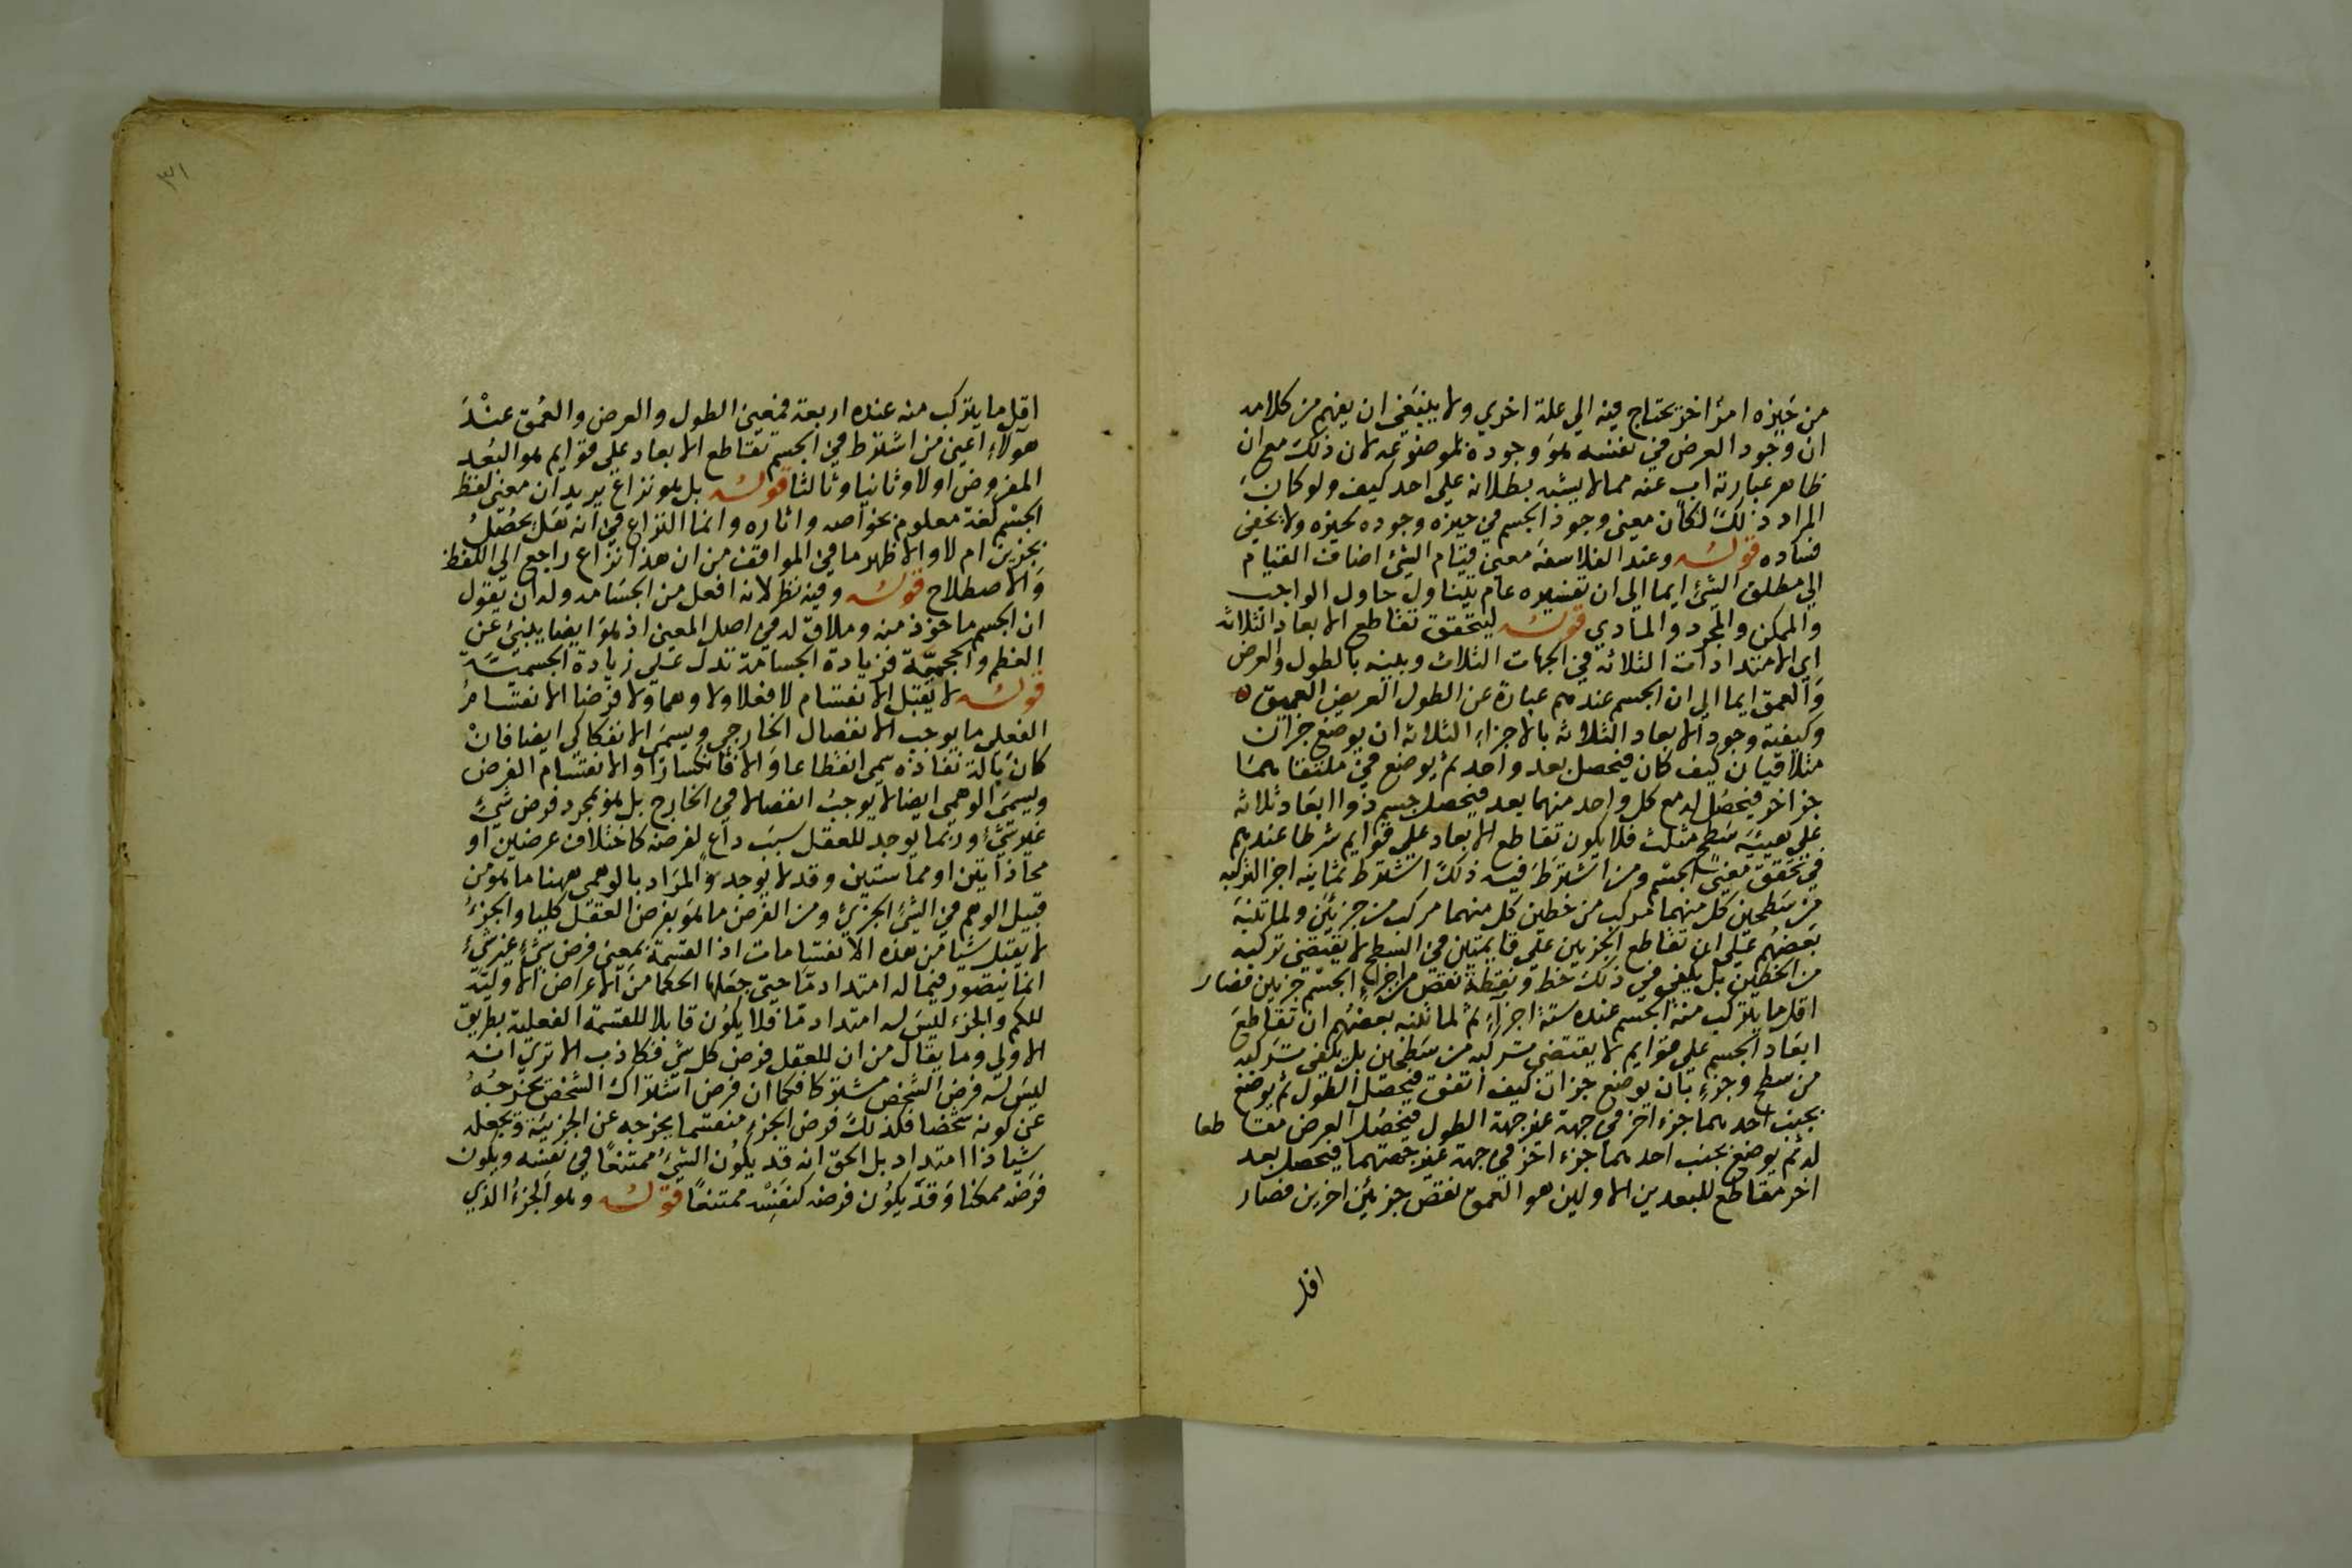 من حيزه امر اخر يحتاج فيه الي علة اخري ولا ينبغي ان يفهم من كلامه
ان وجود العرض في نفسه هو وجوده لموضوعه لان ذلك مع ان
ظاهر عبارته اب عنه مما لا يشبه بطلانه علي احد كيف ولو كان
المراد ذلك لكان معني وجود الجسم في حيزه وجوده لحيزه ولا يخفي
فساده قوله وعند الفلاسفة معني قيام الشئ اضاف القيام
الي مطلق الشئ ايما الي ان تفسيره عام يتناول حاول الواجب
والممكن والمجرد والمادي قوله ليتحقق تقاطع الابعاد الثلاثه
اي الامتدادات الثلاثه في الجهات الثلاث وبينه بالطول والعرض
والعمق ايما الي ان الجسم عندهم عبارة عن الطول العريض العميق
وكيفية وجود الابعاد الثلاثه بالاجزاء الثلاثه ان يوضع جزان
متلاقيان كيف كان فيحصل بعد واحد ثم يوضع في ملتقاهما
جز اخر فيحصل له مع كل واحد منهما بعد فيحصل جسم ذو ابعاد ثلاثه
علي هيئة سطح مثلث فلا يكون تقاطع الابعاد علي قوايم شرطا عندهم
في تحقق معني الجسم ومن اشترط فيه ذلك اشترط ثمانيه اجزا لتركبه
من سطحين كل منهما مركب من خطين كل منهما مركب من جزئين ولما تنبه
بعضهم علي ان تقاطع الجزيين علي قايمتين في السطح لا يقتضي تركبه
من الخطين بل يكفي في ذلك خط ونقطة نقص من اجزاء الجسم جزيين فصار
اقل ما يتركب منه الجسم عنده ستة اجزاء ثم لما تنبه بعضهم ان تقاطع
ابعاد الجسم علي قوايم لا يقتضي تركبه من سطحين بل يكفي تركبه
من سطح وجزء بان يوضع جزان كيف اتفق فيحصل الطول ثم يوضع
بجنب احدهما جزء اخر في جهة غير جهة الطول فيحصل العرض مقاطعا
له ثم يوضع بجنب احدهما جزء اخر في جهة غير جهتهما فيحصل بعد
اخر مقاطع للبعدين الاولين هو العمق نقص جزئين اخرين فصار
اقل
٣١
اقل ما يتركب منه عنده اربعة فمعني الطول والعرض والعمق عند
هولاء اعني من اشترط في الجسم تقاطع الابعاد علي قوايم هو البعد
المفروض اولا وثانيا وثالثا قوله بل هو نزاع يريد ان معني لفظ
الجسم لغة معلوم بخواصه واثاره وانما النزاع في انه هل يحصل
بجزين ام لا والاظهر ما في المواقف من ان هذا نزاع راجع الي اللفظ
والاصطلاح قوله وفيه نظر لانه افعل من الجسامه وله ان يقول
ان الجسم ماخوذ منه وملاق له في اصل المعني اذ هو ايضا ينبئ عن
العظم والحجمية فزيادة الجسامة تدل علي زيادة الجسمية
قوله لا يقبل الانقسام لا فعلا ولا وهما ولا فرضا الانقسام
الفعلي ما يوجب الانفصال الخارجي ويسمي الانفكاكي ايضا فان
كان بالة نفاذه سمي انقطاعا والا فانكسارا والانقسام الفرضي
ويسمي الوهمي ايضا لا يوجب انفصالا في الخارج بل هو بمجرد فرض شئ
غير شئ وربما يوجد للعقل سبب داع لفرضه كاختلاف عرضين او
محاذاتين او مماستين وقد لا يوجد والمراد بالوهمي ههنا ما هو من
قبيل الوهم في الشئ الجزئ ومن الفرض ما هو بفرض العقل كليا والجزء
لا يقبل شيا من هذه الانقسامات اذ القسمة بمعني فرض شئ غير شئ
انما يتصور فيما له امتداد ما حتي جعلها الحكما من الاعراض الاولية
للكم والجزء ليس له امتداد ما فلا يكون قابلا للقسمة الفعلية بطريق
الاولي وما يقال من ان للعقل فرض كل شئ فكاذب الا تري انه
ليس له فرض الشخص مشتركا فكما ان فرض اشتراك الشخص يخرجه
عن كونه شخصا فلذلك فرض الجزء منقسما يخرجه عن الجزئية ويجعله
شيا ذا امتداد بل الحق انه قد يكون الشئ ممتنعا في نفسه ويكون
فرضه ممكنا وقد يكون فرضه كنفسه ممتنعا قوله وهو الجزء الذي